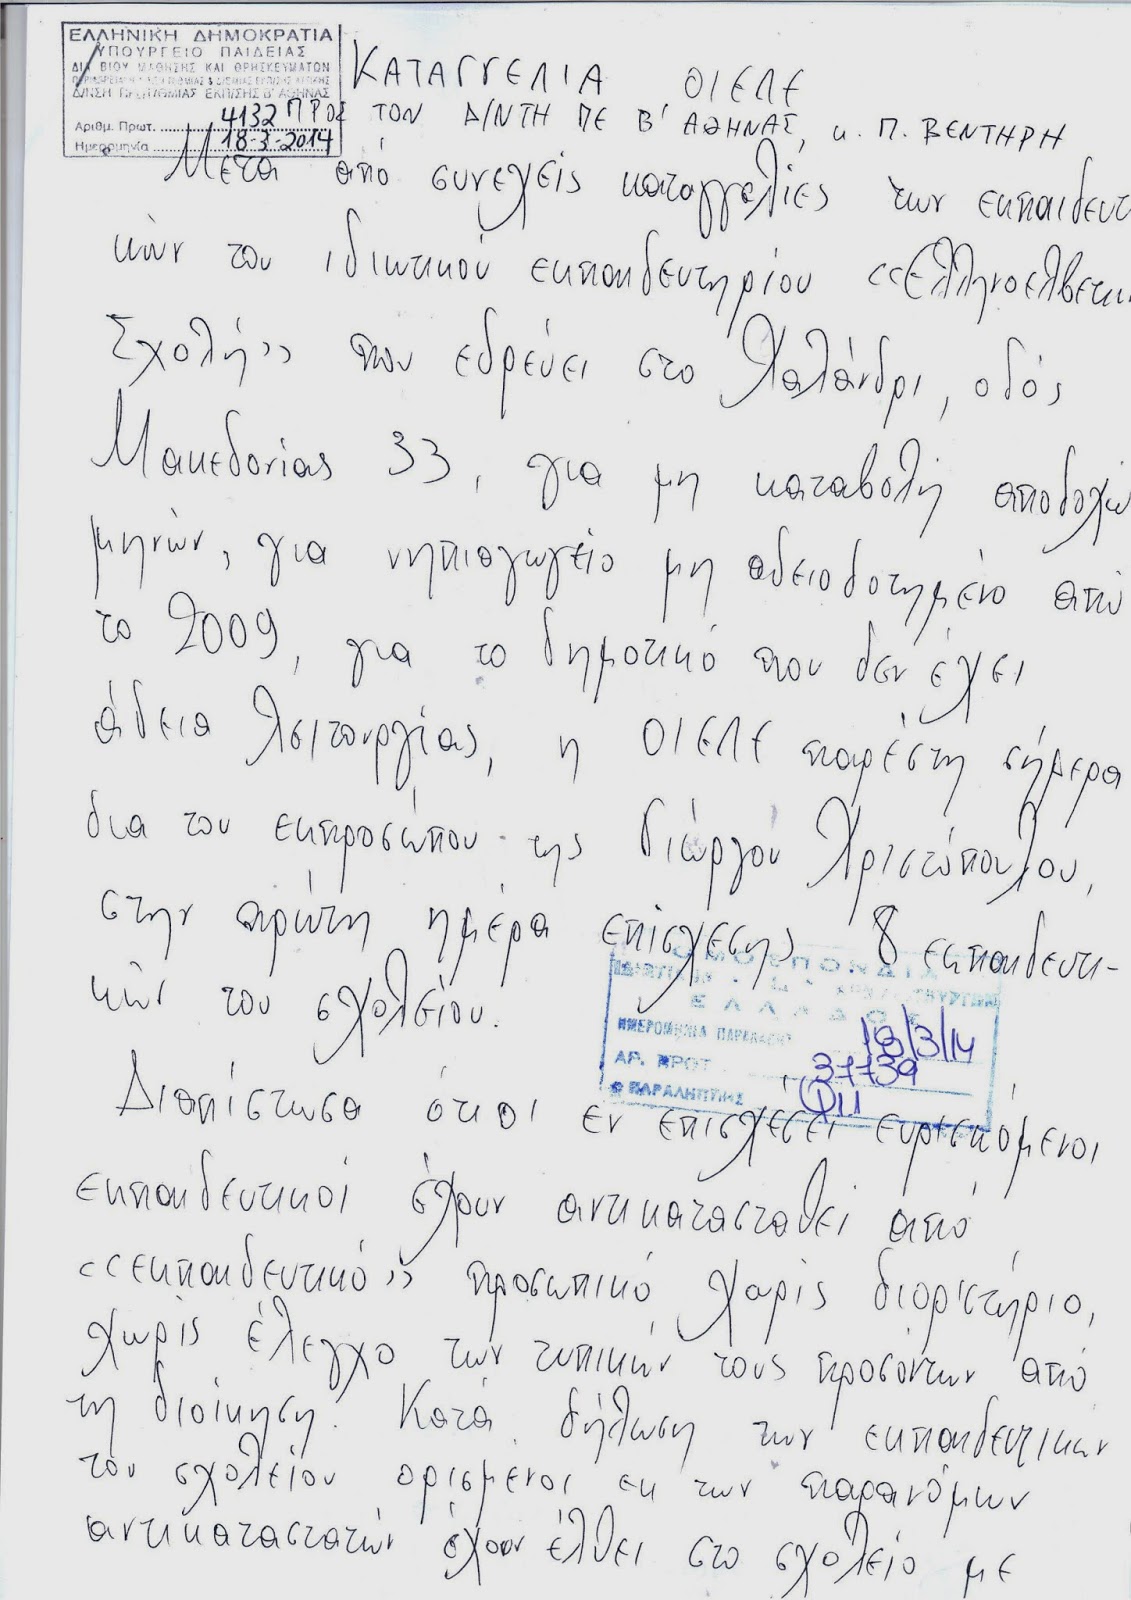 ΕΛΛΗΝΙΚΗ ΔΗΜΟΚΡΑΤΙΑ
ΥΠΟΥΡΓΕΙΟ ΠΑΙΔΕΙΑΣ
ΔΙΑ ΒΙΟΥ ΜΑΘΗΣΗΣ ΚΑΙ ΘΡΗΣΚΕΥΜΑΤΩΝ
Δ/ΝΣΗ ΠΡΩΤ/ΘΜΙΑΣ ΕΚΠ/ΣΗΣ Β' ΑΘΗΝΑΣ
Αριθμ. Πρωτ. 4132
Ημερομηνία 18-3-2014
ΚΑΤΑΓΓΕΛΙΑ ΟΙΕΛΕ
ΠΡΟΣ ΤΟΝ Δ/ΝΤΗ ΠΕ Β' ΑΘΗΝΑΣ, κ. Π. ΒΕΝΤΗΡΗ
Μετά από συνεχείς καταγγελίες των εκπαιδευτ
κών του ιδιωτικού εκπαιδευτηρίου <<Ελληνοελβετικ
Σχολή>> που εδρεύει στο Χαλάνδρι, οδός
Μακεδονίας 33, για μη καταβολή αποδοχώ
μηνών, για νηπιαγωγείο μη αδειοδοτημένο από
το 2009, για το δημοτικό που δεν έχει
άδεια λειτουργίας, η ΟΙΕΛΕ παρέστη σήμερα
δια του εκπροσώπου της Γιώργου Χριστόπουλου,
στην πρώτη ημέρα επίσχεσης 8 εκπαιδευτι-
κών του σχολείου.
ΕΛΛΑΔΟΣ
ΗΜΕΡΟΜΗΝΙΑ ΠΑΡΑΛΑΒΗΣ 18/3/14
ΑΡ. ΠΡΩΤ. 37739
Ο ΠΑΡΑΛΗΠΤΗΣ
Διαπίστωσα ότι οι εν επισχέσει ευρισκόμενοι
εκπαιδευτικοί έχουν αντικατασταθεί από
<<εκπαιδευτικό>> προσωπικό χωρίς διοριστήριο,
χωρίς έλεγχο των τυπικών τους προσόντων από
τη διοίκηση. Κατά δήλωση των εκπαιδευτικών
του σχολείου ορισμένοι εκ των παρανόμων
αντικαταστατών έχουν έλθει στο σχολείο με